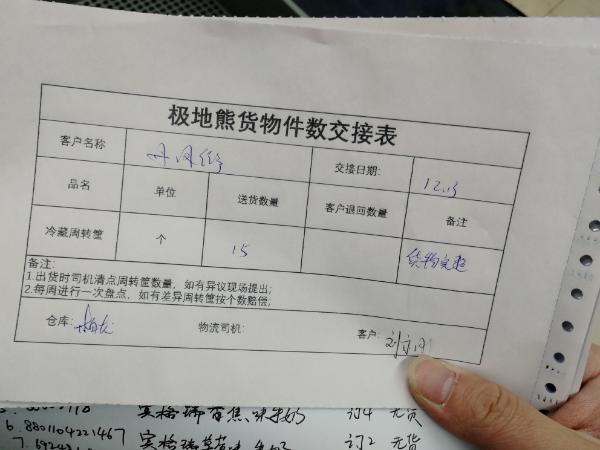 极地熊货物件数交接表
客户名称 丹凤街 交接日期: 12.13
品名 单位 送货数量 客户退回数量 备注
冷藏周转筐 个 15 货物完整
备注:
1.出货时司机清点周转筐数量,如有异议现场提出;
2.每周进行一次盘点,如有差异周转筐按个数赔偿;
仓库: 物流司机: 客户:
订4 无货
6.8801104221467 宾格瑞草莓味牛奶 订2 无货